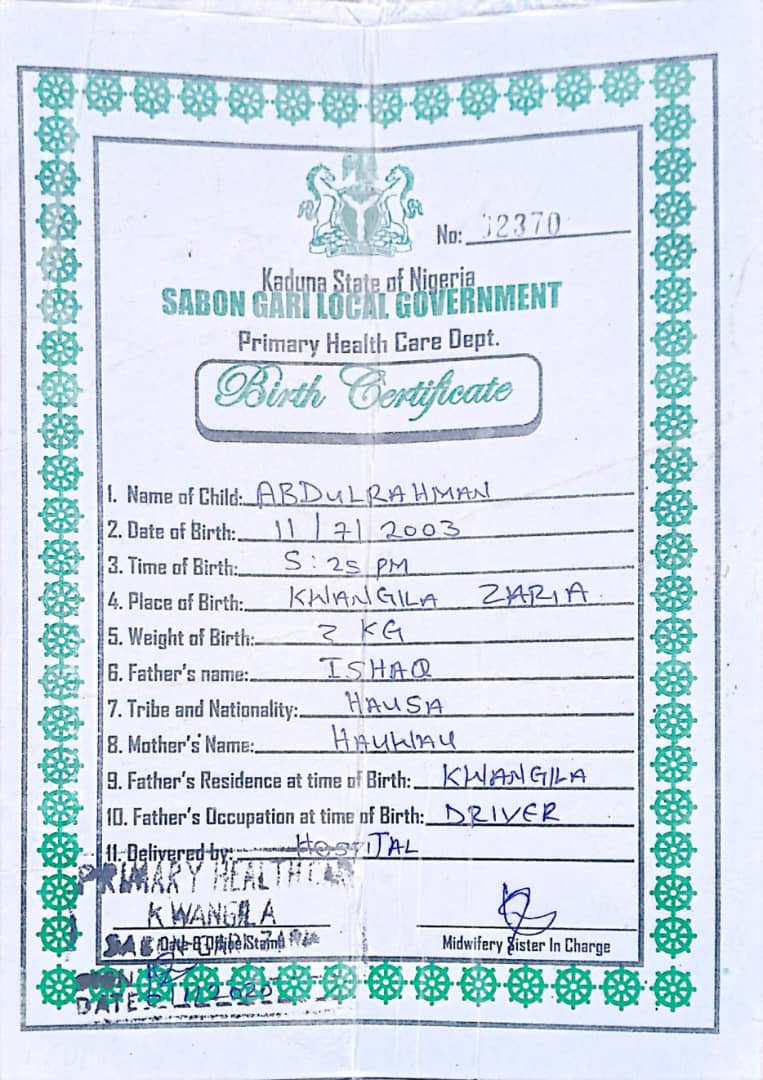 No: 02370
Kaduna State of Nigeria
SABON GARI LOCAL GOVERNMENT
Primary Health Care Dept.
Birth Certificate
1. Name of Child: ABDULRAHMAN
2. Date of Birth: 11/7/2003
3. Time of Birth: 5:25 PM
4. Place of Birth: KWANGILA ZARIA
5. Weight of Birth: 2 KG
6. Father's name: ISHAQ
7. Tribe and Nationality: HAUSA
8. Mother's Name: HAUWAU
9. Father's Residence at time of Birth: KWANGILA
10. Father's Occupation at time of Birth: DRIVER
11. Delivered by: HOSPITAL
PRIMARY HEALTH CARE
KWANGILA
Stamp
Midwifery Sister In Charge
SIGN
DATE